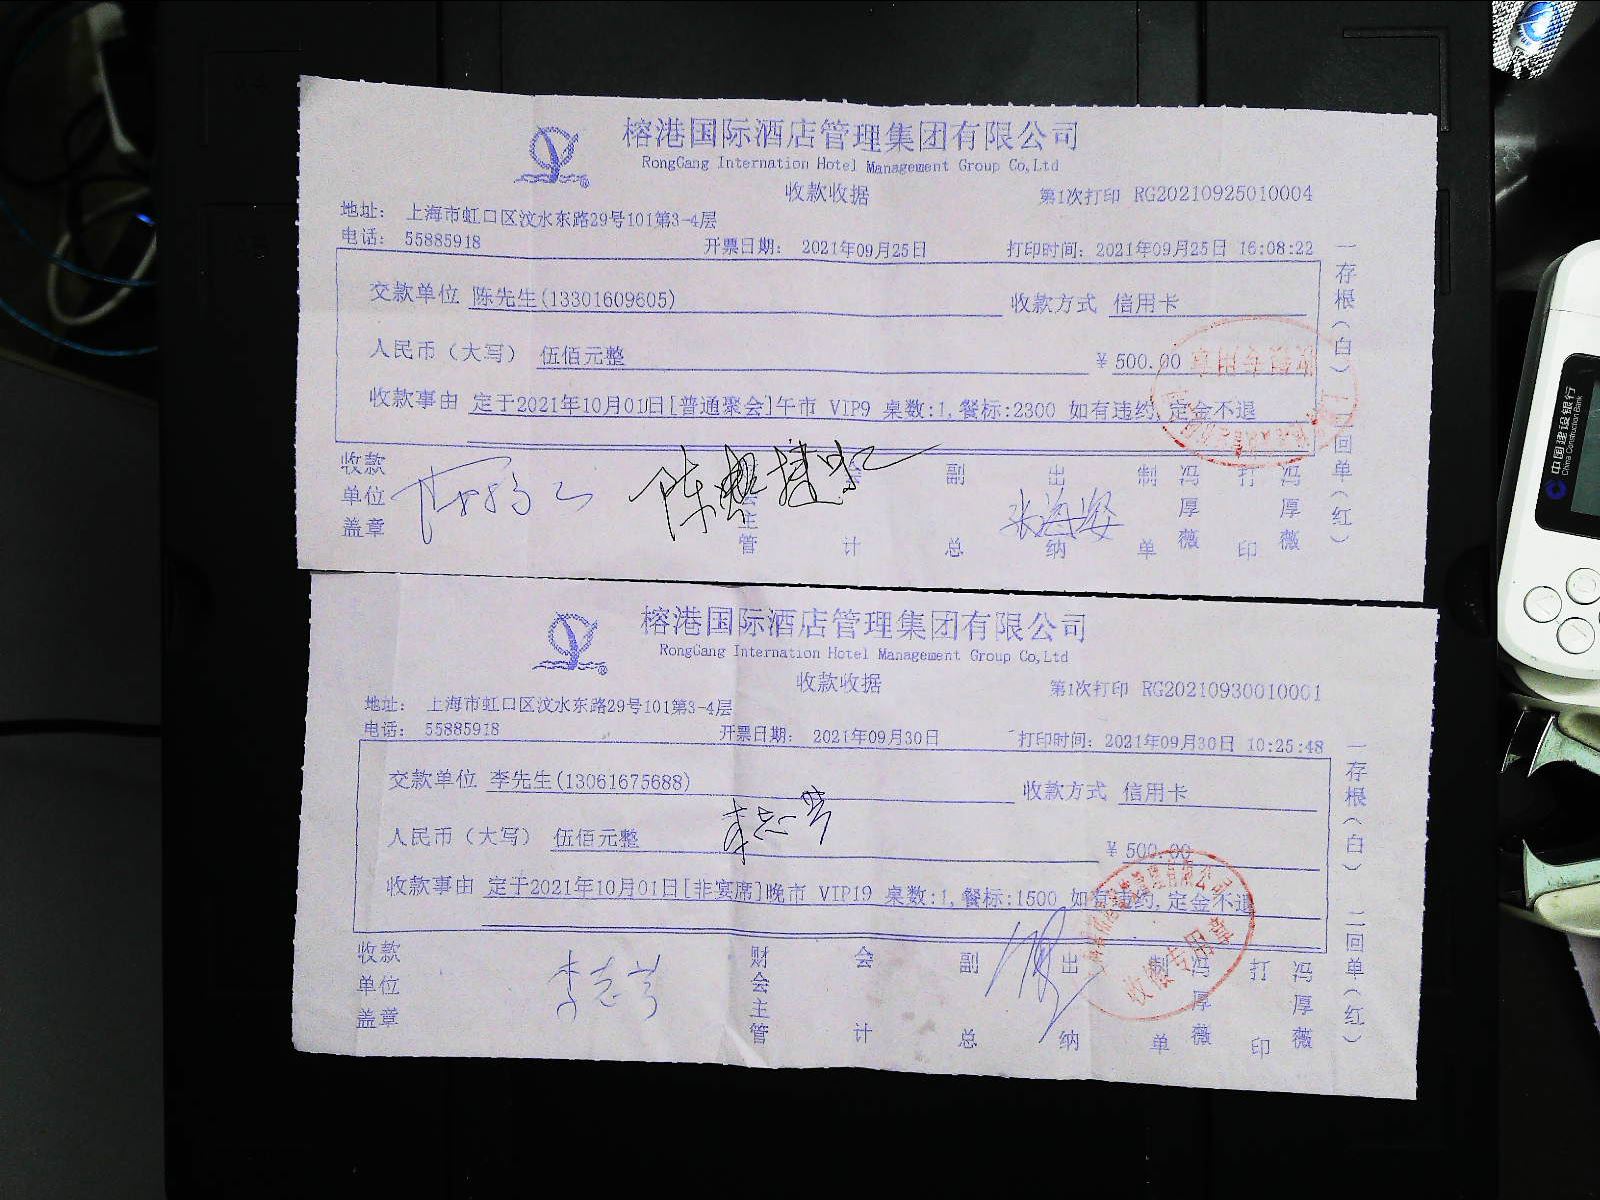 榕港国际酒店管理集团有限公司
RongGang Internation Hotel Management Group Co,Ltd
收款收据
第1次打印 RG20210925010004
地址： 上海市虹口区汶水东路29号101第3-4层
电话： 55885918 开票日期： 2021年09月25日 打印时间：2021年09月25日 16:08:22
交款单位 陈先生(13301609605) 收款方式 信用卡
人民币（大写） 伍佰元整 ¥ 500.00
收款事由 定于2021年10月01日[普通聚会]午市 VIP9 桌数:1,餐标:2300 如有违约,定金不退
收款单位盖章 会主管 会计 副总 出纳 张海燕 制单 冯厚薇 打印 冯厚薇
一存根（白） 二回单（红）
榕港国际酒店管理集团有限公司
RongGang Internation Hotel Management Group Co,Ltd
收款收据
第1次打印 RG20210930010001
地址： 上海市虹口区汶水东路29号101第3-4层
电话： 55885918 开票日期： 2021年09月30日 打印时间：2021年09月30日 10:25:48
交款单位 李先生(13061675688) 收款方式 信用卡
人民币（大写） 伍佰元整 ¥ 500.00
收款事由 定于2021年10月01日[非宴席]晚市 VIP19 桌数:1,餐标:1500 如有违约,定金不退
收款单位盖章 财会主管 会计 副总 出纳 制单 冯厚薇 打印 冯厚薇
一存根（白） 二回单（红）
收缴专用章
中国建设银行
China Construction Bank